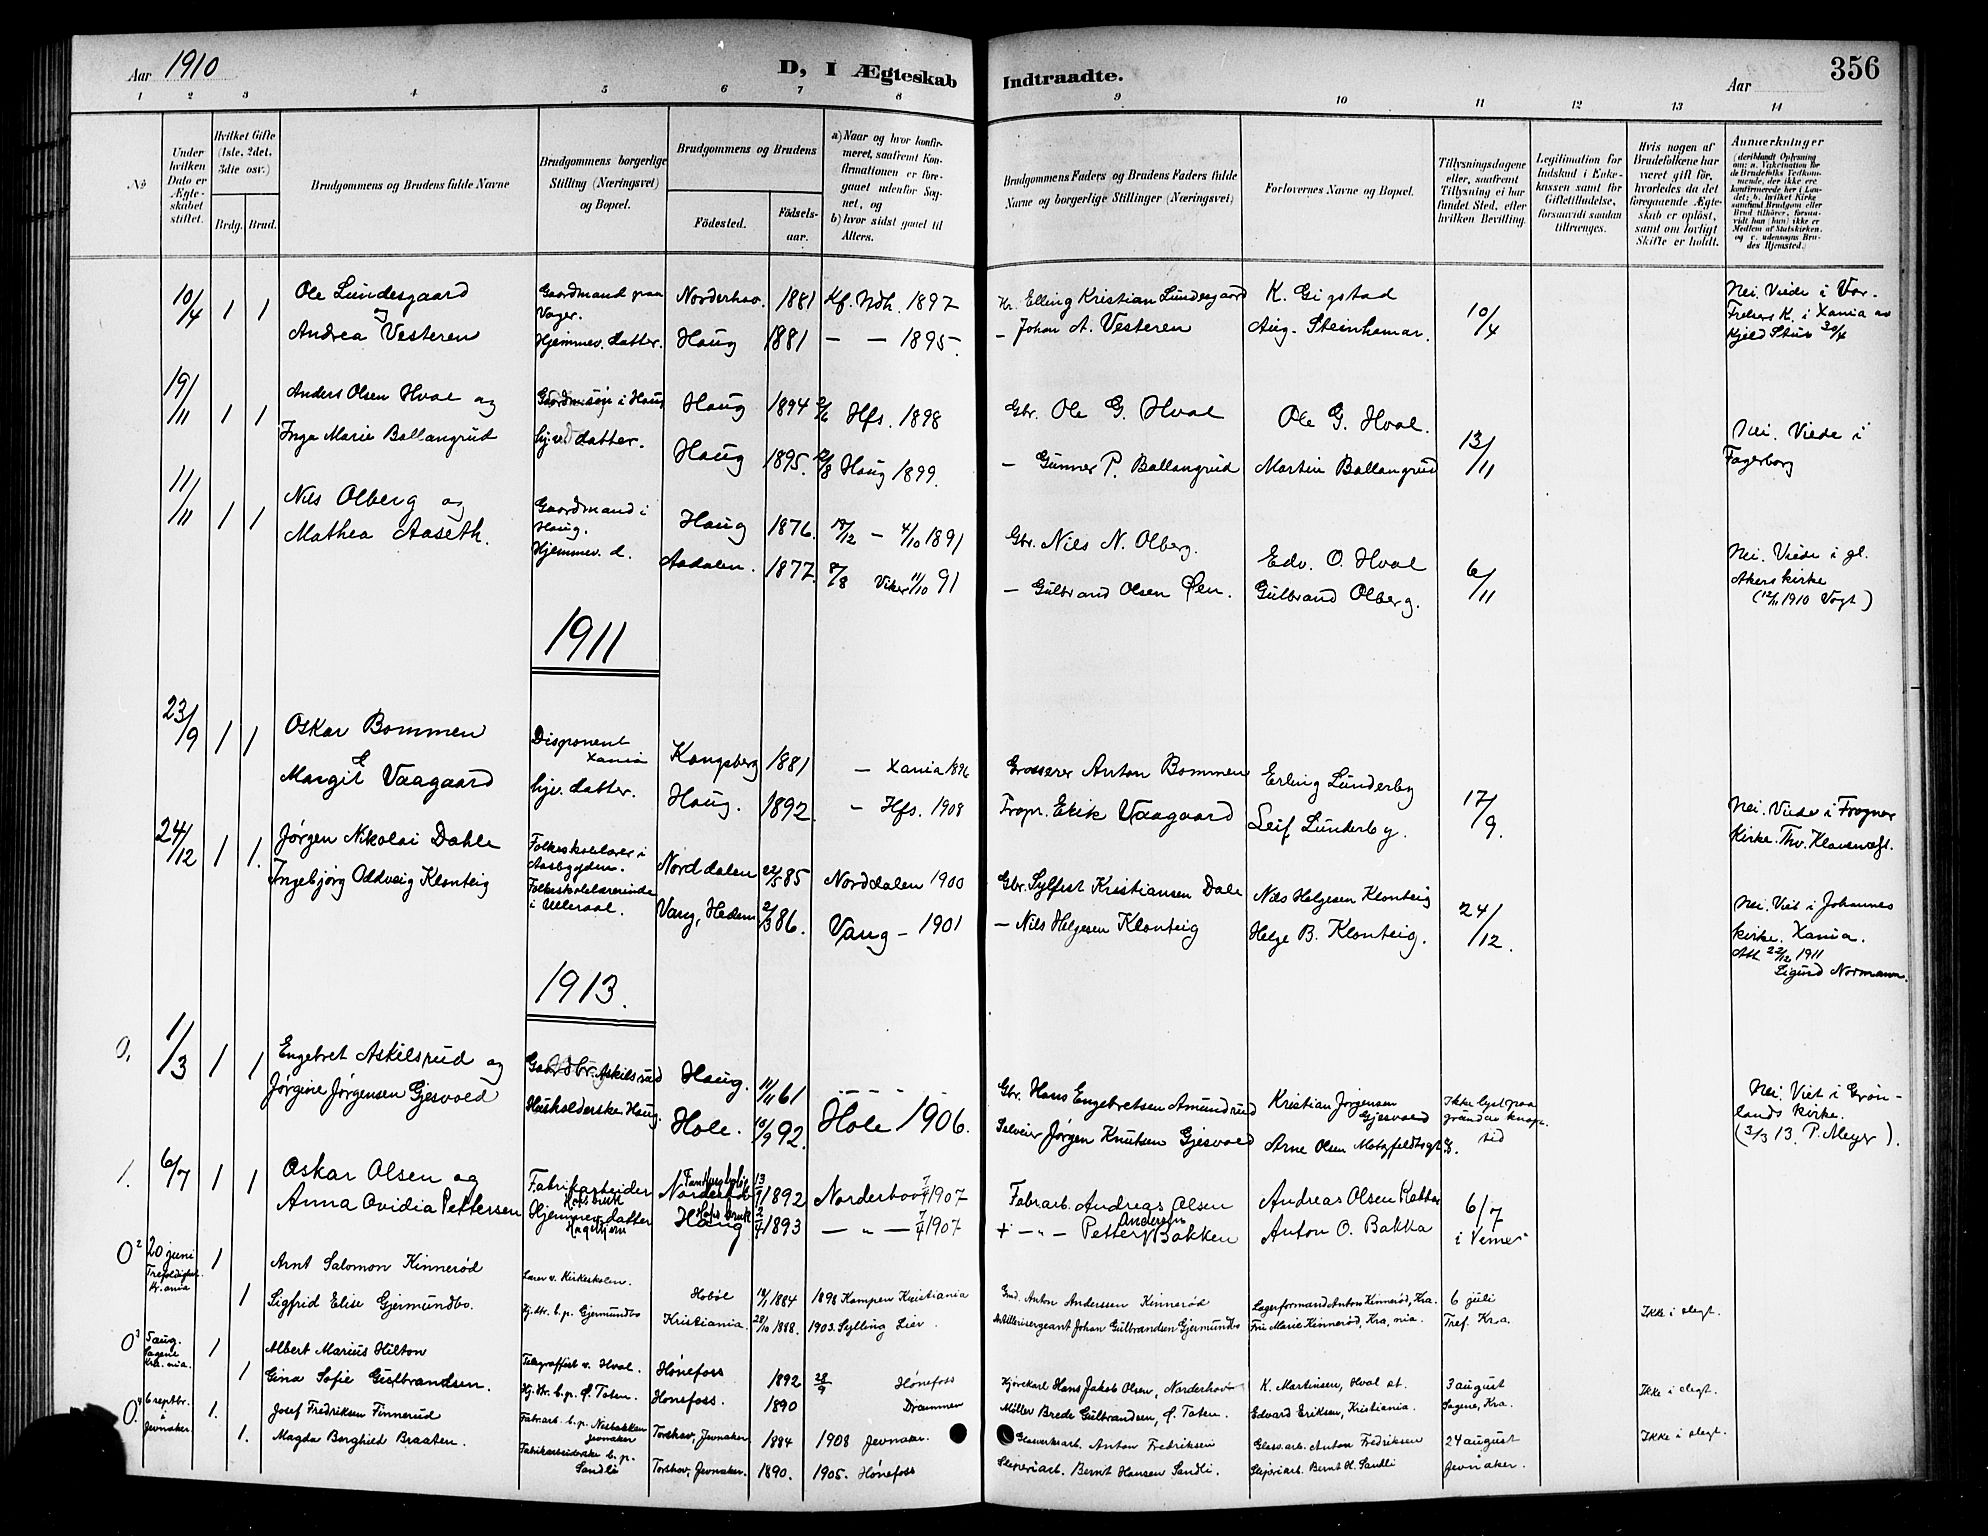 Aar 1910
D, I Ægteskab Indtraadte.
Aar
356
1 2 3 4 5 6 7 8 9 10 11 12 13 14
No
Under hvilken Dato er Ægteskabet stiftet.
Hvilket Gifte (1ste, 2det, 3die osv.)
Brdg. Brud.
Brudgommens og Brudens fulde Navne
Brudgommens borgerlige Stilling (Næringsvei) og Bopæl.
Brudgommens og Brudens
Fødested.
Fødselsaar.
a) Naar og hvor konfirmeret, saafremt Konfirmationen er foregaaet udenfor Sognet, og
b) hvor sidst gaaet til Alters.
Brudgommens Faders og Brudens Faders fulde Navne og borgerlige Stillinger (Næringsvei)
Forlovernes Navne og Bopæl.
Tillysningsdagene eller, saafremt Tillysning ei har fundet Sted, efter hvilken Bevilling.
Legitimation for Indskud i Enkekassen samt for Giftetilladelse, forsaavidt saadan tiltrænges.
Hvis nogen af Brudefolkene har været gift før, hvorledes da det foregaaende Ægteskab er opløst, samt om lovligt Skifte er holdt.
Anmærkninger
10/4 1 1 Ole Lundesgaard og Gaardmand paa Vager. Norderhov. 1881 Kf. Ndh. 1897 Elling Kristian Lundesgaard K. Gigstad 10/4 Nei. Viede i Vor Frelsers K. i Xania av Kjeld Stub 30/4
Andrea Vesteren Hjemmev. datter. Haug 1881 — — 1895. – Johan A. Vesteren Aug. Steinhamar.
19/11 1 1 Anders Olsen Hval og i Haug Haug 1894 Hfs. 1898 Gbr. Ole G. Hval Ole G. Hval. 13/11 Nei. Viede i Fagerborg
Inga Marie Ballangrud datter. Haug 1895. Haug 1899. – Gunner P. Ballangrud Martin Ballangrud
11/11 1 1 Nils Olberg og Gaardmand i Haug. Haug 1876. 17/12 – 4/10 1891 Gbr. Nils N. Olberg. Edv. O. Hval 6/11 Nei. Viede i gl. Akers kirke (12/11 1910 Vogt)
Mathea Aaseth. Hjemmev. d. Aadalen. 1877. 7/8 Viker 11/10 91 – Gulbrand Olsen Øen. Gulbrand Olberg.
1911
23/9 1 1 Oskar Bommen & Disponent Xania Kongsberg 1881 – Xania 1896 Grosserer Anton Bommen Erling Lunderby 17/9. Nei. Viede i Frogner Kirke. Thv. Klaveness.
Margit Vaagaard hjv. datter. Haug. 1892. – Hfs. 1908 Propr. Erik Vaagaard Leif Lunderby.
24/12 1 1. Jørgen Nikolai Dahle Folkeskolelærer i Aasbygden. Norddalen 22/5 85 Norddalen 1900 Gbr. Sylfest Kristiansen Dale Nils Helgesen Klonteig 24/12. Nei. Viet i Johannes kirke. Xania. Att 22/12 1911 Sigurd Normann.
Ingebjørg Oddveig Klonteig Folkeskolelærerinde i Ulleraal. Vang, Hedem 2/3 86. Vang – 1901 – Nils Helgesen Klonteig Helge B. Klonteig.
1913.
0, 1/3 1 1 Engebret Askilsrud og Gaardbr. Askilsrud Haug. 11/11 61 ---- Gbr. Hans Engebretsen Amundrud Kristian Jørgensen Gjesvold Ikke lyst paa grund av knap tid Nei. Viet i Grønlands kirke. (3/3 13. P. Meyer).
Jørgine Jørgensen Gjesvold Husholderske Haug. Hole. 10/9 92. Hole 1906. Selveier Jørgen Knutsen Gjesvold Arne Olsen Motzfeldtsgt
1. 6/7 1 1 Oskar Olsen og Fabrikarbeider Hofsbruk Norderhov 13/1 1892 Norderhov 7/4 1907 Fabarb. Andreas Olsen Andreas Olsen 6/7 i Veme
Anna Ovidia Pettersen Hjemmev. datter Hagahorn Haug 2/7 1893 – " – 7/4 1907 + – " – Petter Andersen Bakken Anton O. Bakka
0² 20 juni Trefoldighet. Kr.ania 1 Arnt Salomon Kinnerød Lærer v. Kirkeskolen. Hobøl 1884 1898 Kampen Kristiania Anton Anderssen Kinnerød Lagerformand Anton Kinnerød, Kra. 6 juli Tref. Kra. Ikke i slegt.
1 Sigfrid Elise Gjermundbo. Hj.dtr. b.p. Gjermundbo Kristiania. 28/10 1888. 1903. Sylling Lier. Artillerisergeant Johan Gulbrandsen Gjermundbo Fru Marie Kinnerød, Kra, nia.
0³ 5 aug. Sagene Kra. nia. 1 Albert Marius Hilton Telegrafist v. Hval. Hønefoss 1892 28/9 Hønefoss Kjørekarl Hans Jakob Olsen, Norderhov K. Martinsen, Hval st. 3 august Sagene, Kra. Ikke i slegt.
1 Gina Sofie Gulbrandsen. Hj.dtr. b.p. Ø. Toten. Hønefoss. 1890 Drammen Møller Brede Gulbrandsen, Ø. Toten. Edvard Eriksen, Kristiania.
0.⁴ 6 septbr. i Jevnaker 1. Josef Fredriksen Finnerud Fabrarb. b.p. Nesbakken Jevnaker Torshov, Jevnaker 1884 1908 Jevnaker. Glasverksarb. Anton Fredriksen Glasv.arb. Anton Fredriksen 24 august Jevnaker. Ikke i slegt.
1. Magda Borghild Braaten. Fabrikarbeiderske b.p. Sandli Torshov, Jevnaker. 1890. 1905. Hønefoss Sliperiarb. Bernt Hansen Sandli. Sliperiarb. Bernt H. Sandli